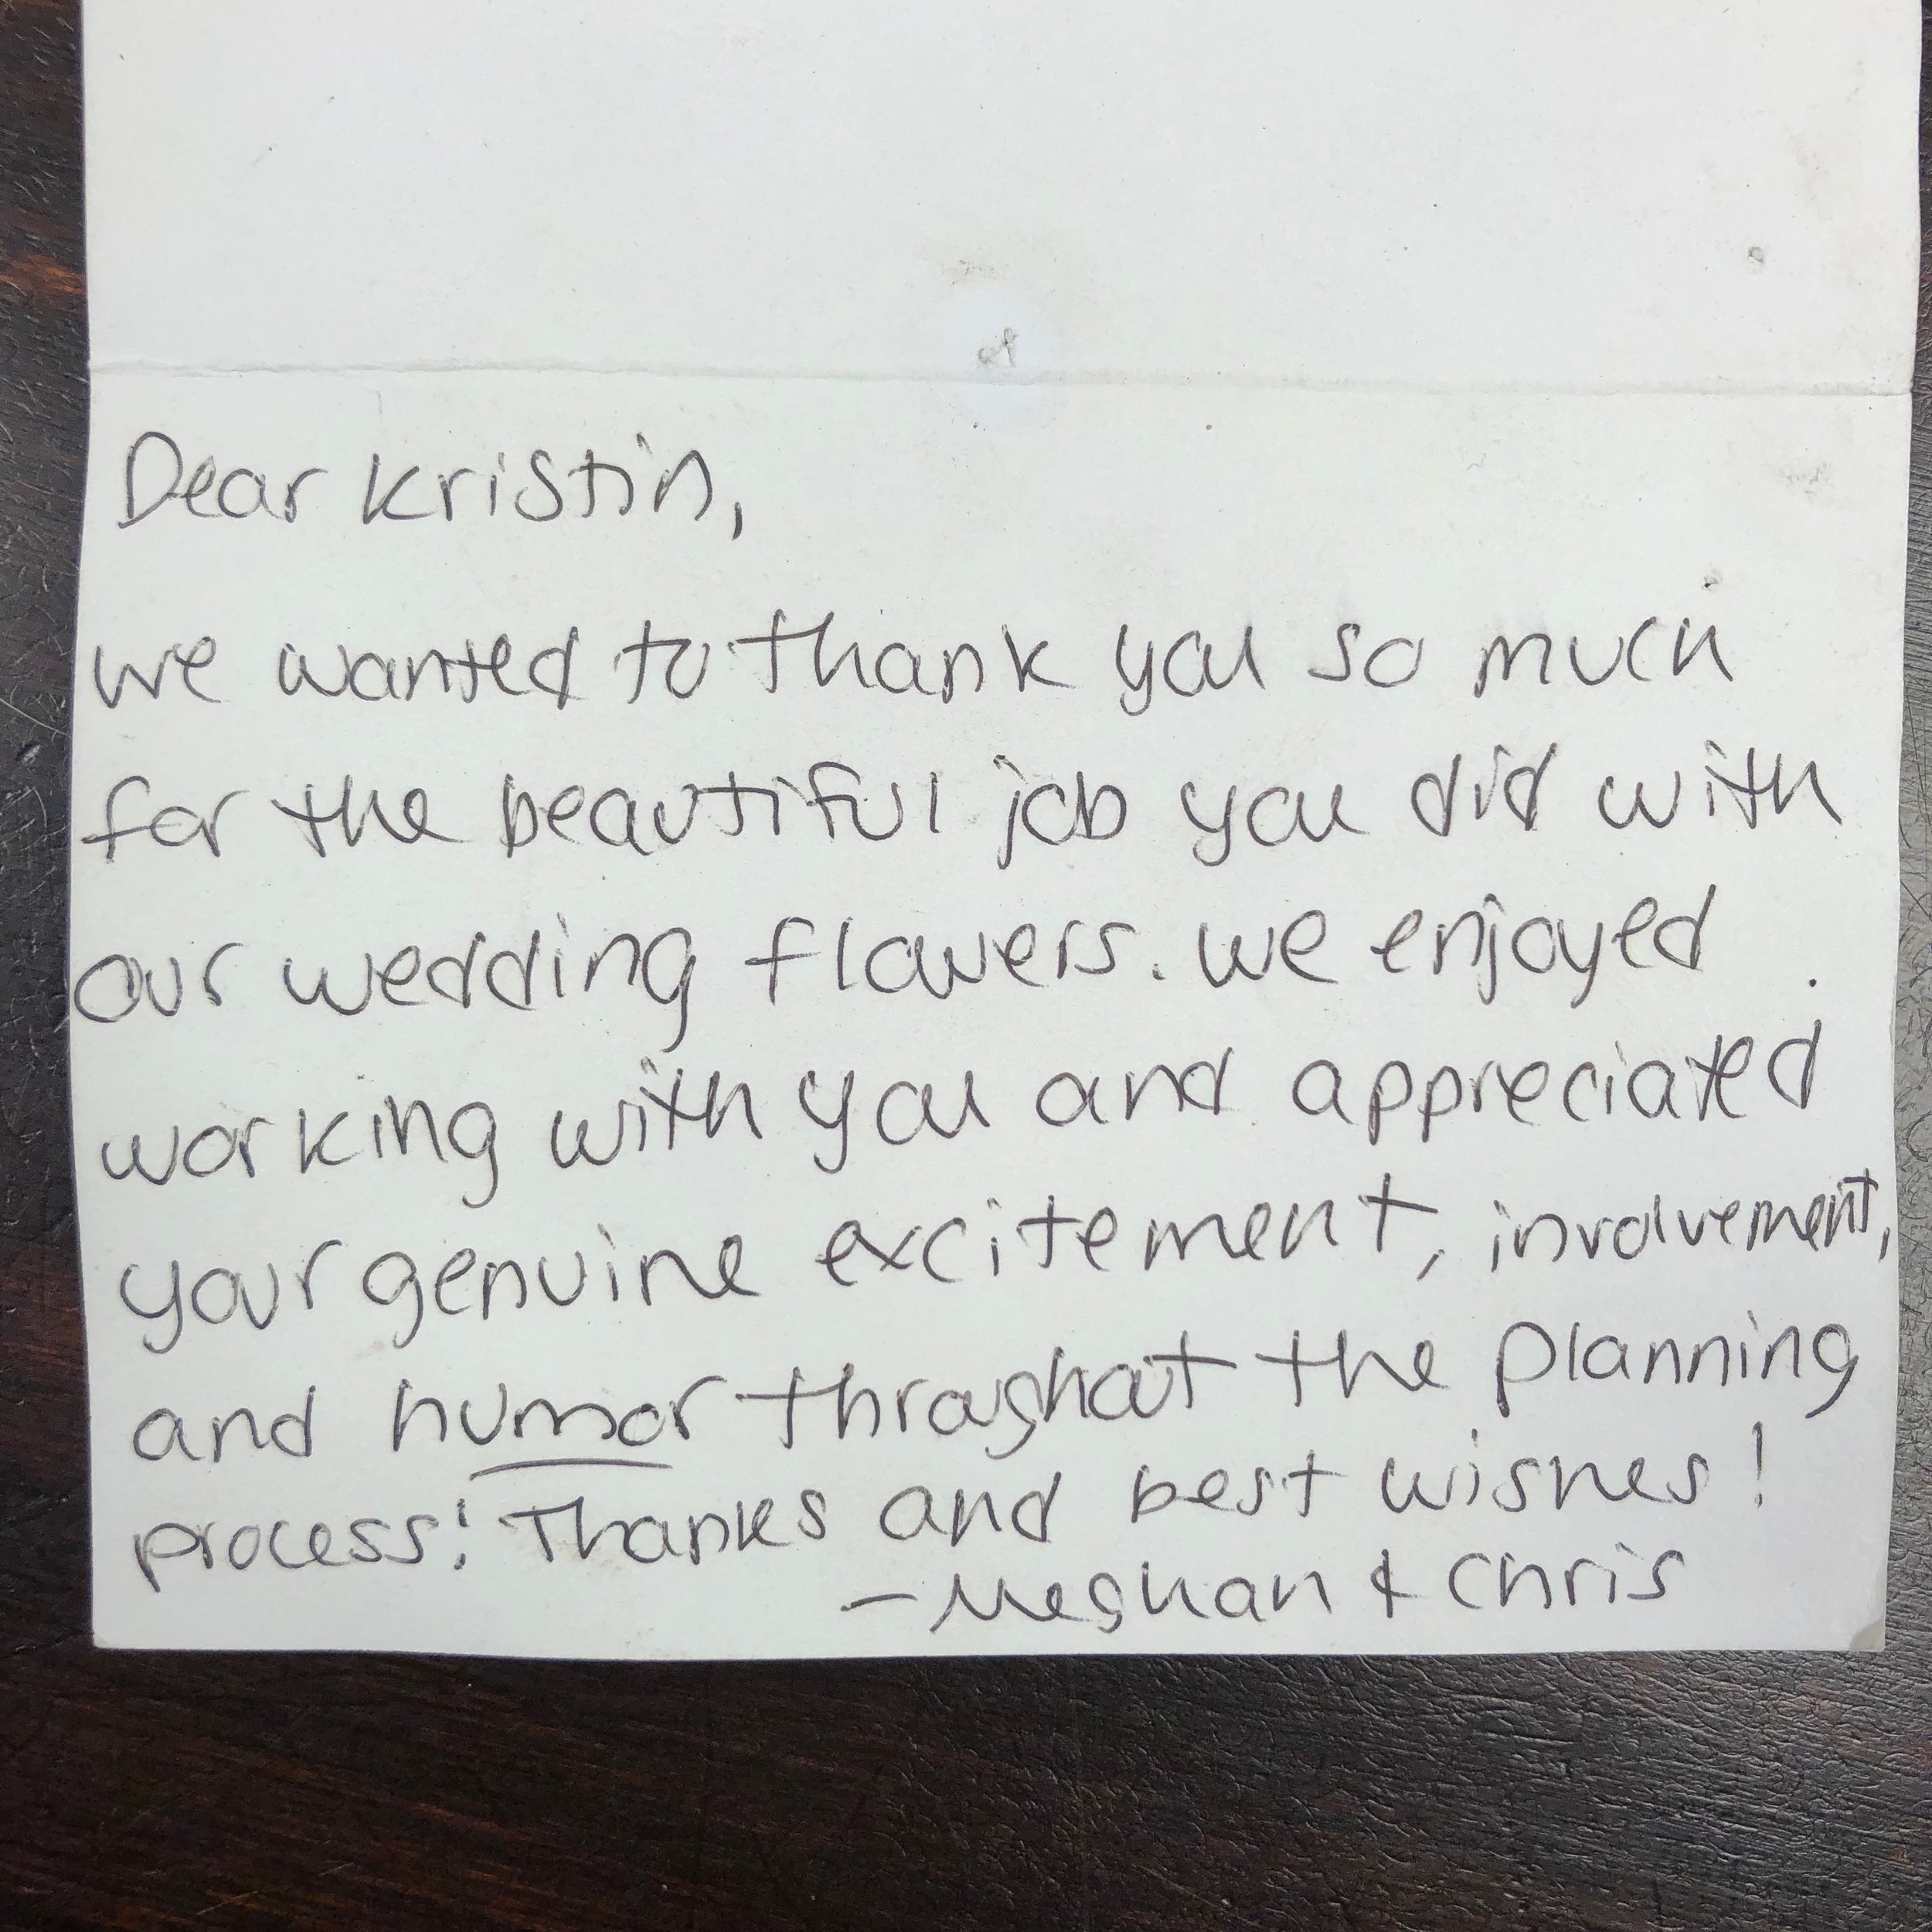 Dear Kristin,
we wanted to thank you so much
for the beautiful job you did with
our wedding flowers. we enjoyed
working with you and appreciated
your genuine excitement, involvement,
and humor throughout the planning
process! Thanks and best wishes!
- Meghan & Chris